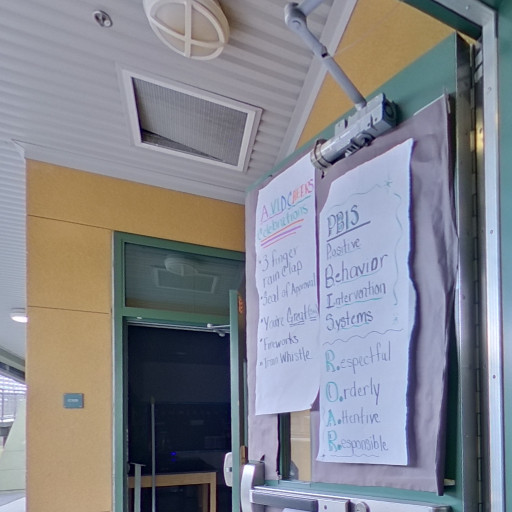 A.V.I.D
Celebrations
• 3 finger
rain clap
• Seal of Approval
• You're
• Fireworks
• Train Whistle
PBIS
Positive
Behavior
Intervention
Systems
Respectful
Orderly
Attentive
Responsible